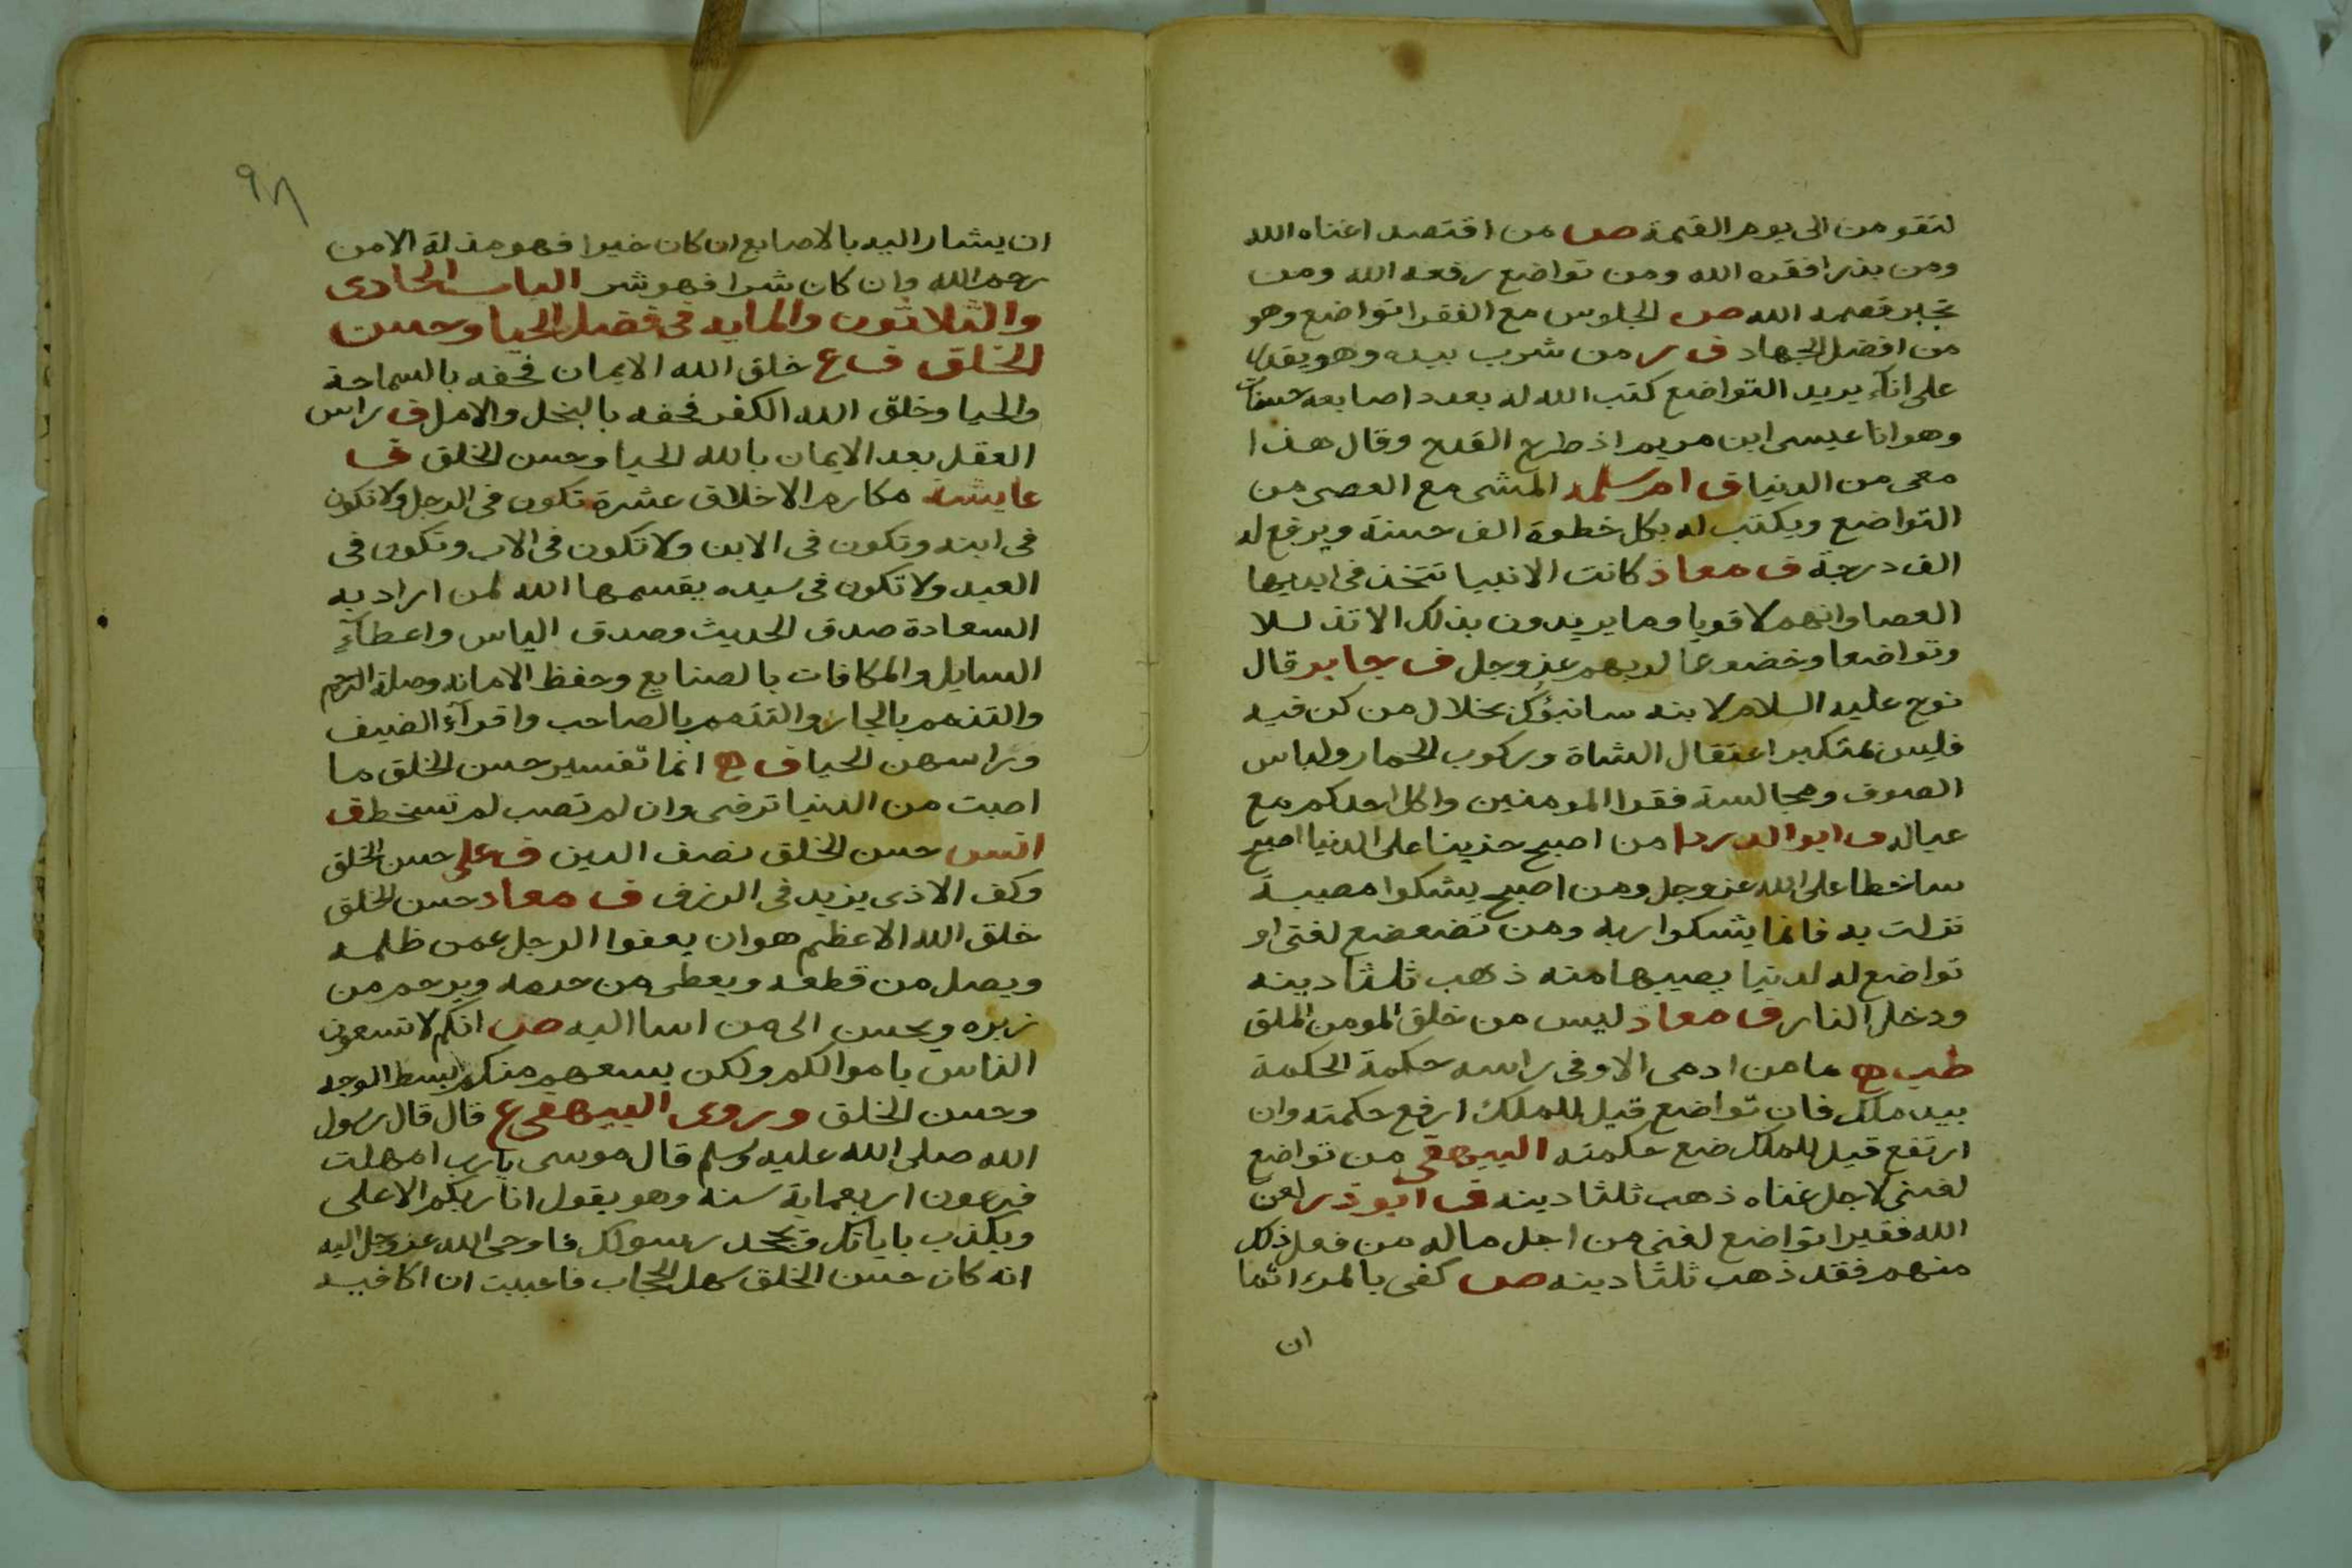 لتقومن الى يوم القيمة ص من اقتصد اغناه الله
ومن بذر افقره الله ومن تواضع رفعه الله ومن
تجبر قصمه الله ص الجلوس مع الفقرا تواضع وهو
من افضل الجهاد ف ر من شرب بيده وهو يقدر
على انآء يريد التواضع كتب الله له بعدد اصابعه حسنات
وهو انا عيسى ابن مريم اذ طرح القدح وقال هذا
معى من الدنيا ف ام سلمه المشى مع العصى من
التواضع ويكتب له بكل خطوة الف حسنة ويرفع له
الف درجة ف معاذ كانت الانبيا تتخذ فى ايديها
العصا وانهم لاقويا وما يريدون بذلك الا تذللا
وتواضعا وخضوعا لربهم عز وجل ف جابر قال
نوح عليه السلام لابنه سانبؤك بخلال من كن فيه
فليس بمتكبر اعتقال الشاة وركوب الحمار ولباس
الصوف ومجالسة فقرا المومنين واكل احدكم مع
عياله ف ابو الدردا من اصبح حزينا على الدنيا اصبح
ساخطا على الله عز وجل ومن اصبح يشكوا مصيبة
نزلت به فانما يشكوا ربه ومن تضعضع لغنى او
تواضع له لدنيا يصيبها منه ذهب ثلثا دينه
ودخل النار ف معاذ ليس من خلق المومن الملق
طب ه ما من ادمى الا وفى راسه حكمة الحكمة
بيد ملك فان تواضع قيل للملك ارفع حكمته وان
ارتفع قيل للملك ضع حكمته البيهقى من تواضع
لغنى لاجل غناه ذهب ثلثا دينه ف ابو ذر لعن
الله فقيرا تواضع لغنى من اجل ماله من فعل ذلك
منهم فقد ذهب ثلثا دينه ص كفى بالمرء اثما
ان
٩٨
ان يشار اليه بالاصابع ان كان خيرا فهو مذلة الا من
رحم الله وان كان شرا فهو شر الباب الحادى
والثلاثون والمايه فى فضل الحيا وحسن
الخلق ف ع خلق الله الايمان فحفه بالسماحة
والحيا وخلق الله الكفر فحفه بالبخل والامل ف راس
العقل بعد الايمان بالله الحيا وحسن الخلق ف
عايشه مكارم الاخلاق عشرة تكون فى الرجل ولا تكون
فى ابنه وتكون فى الابن ولا تكون فى الاب وتكون فى
العبد ولا تكون فى سيده يقسمها الله لمن اراد به
السعادة صدق الحديث وصدق الباس واعطآء
السايل والمكافات بالصنايع وحفظ الامانه وصلة الرحم
والتذمم بالجار والتذمم بالصاحب واقرآء الضيف
وراسهن الحيا ف ه انما تفسير حسن الخلق ما
اصبت من الدنيا ترضى وان لم تصب لم تسخط ف
انس حسن الخلق نصف الدين ف على حسن الخلق
وكف الاذى يزيد فى الرزق ف معاد حسن الخلق
خلق الله الاعظم هو ان يعفوا الرجل عمن ظلمه
ويصل من قطعه ويعطى من حرمه ويرحم من
زبره ويحسن الى من اسا اليه ص انكم لا تسعون
الناس باموالكم ولكن يسعهم منكم بسط الوجه
وحسن الخلق وروى البيهقى ع قال قال رسول
الله صلى الله عليه وسلم قال موسى يارب امهلت
فرعون اربعماية سنه وهو يقول انا ربكم الاعلى
ويكذب باياتك ويجحد رسولك فاوحى الله عز وجل اليه
انه كان حسن الخلق سهل الحجاب فاحببت ان اكافيه